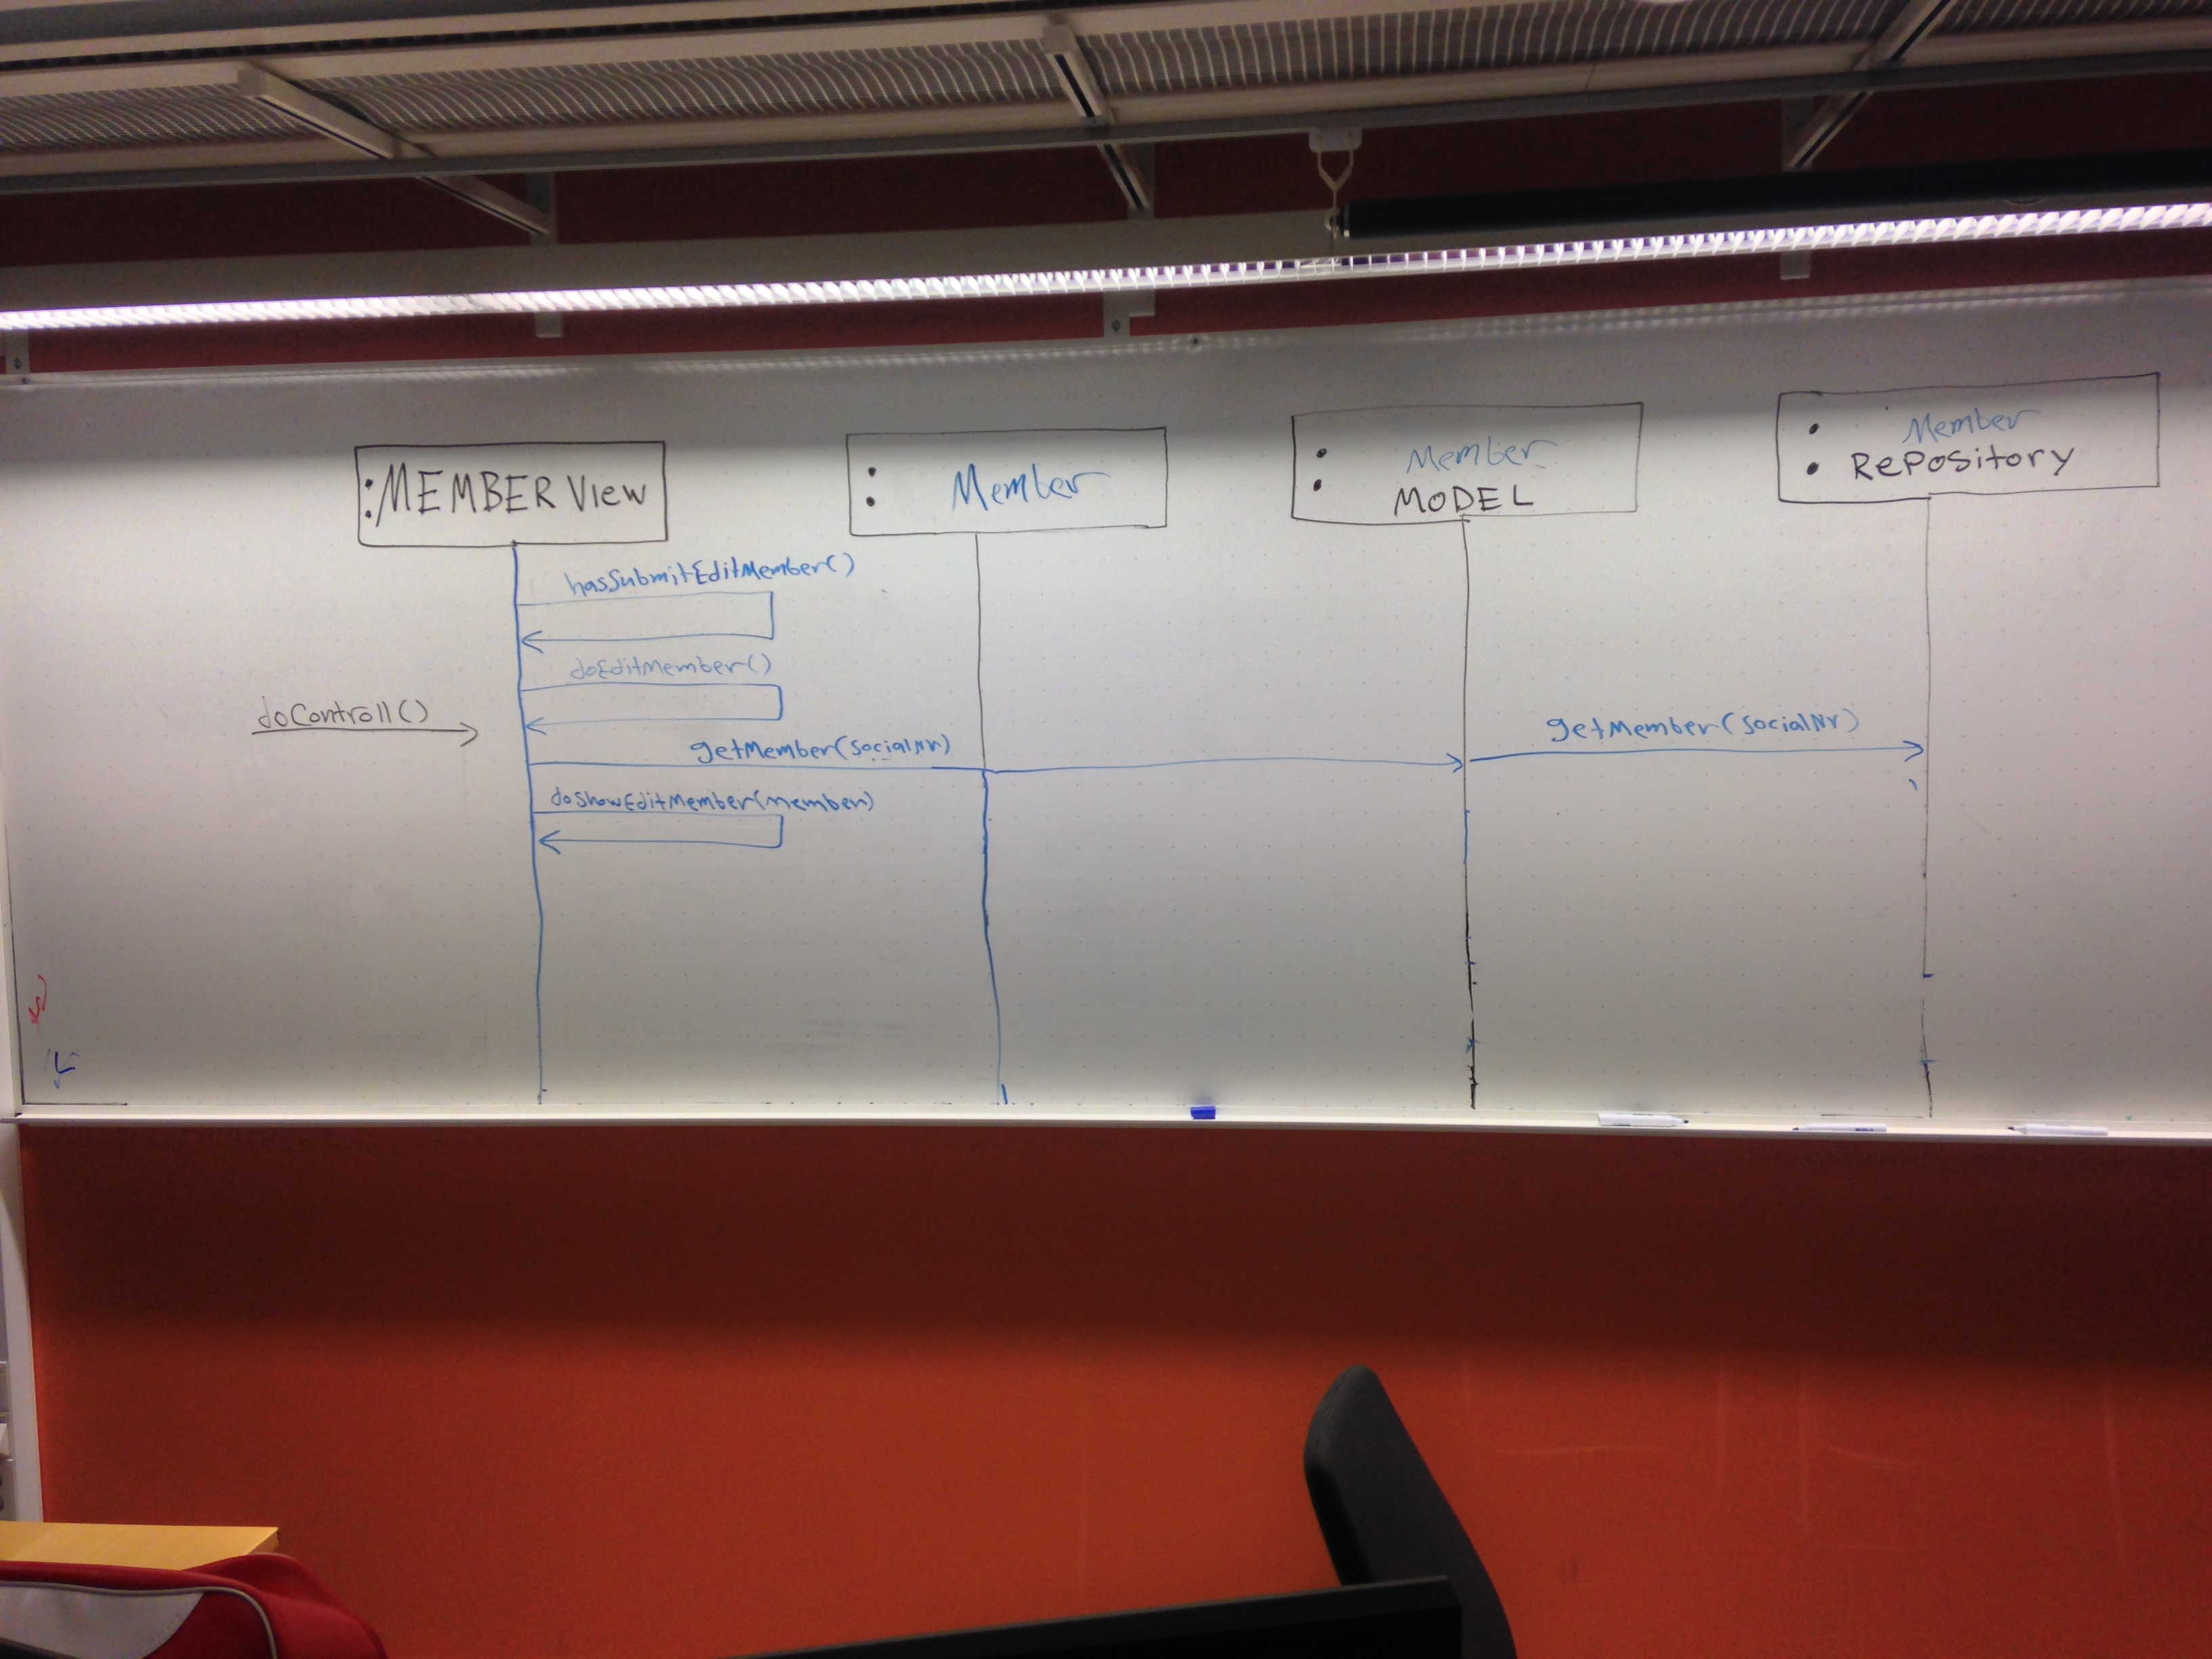 :MEMBER View
: Member
: Member
MODEL
: Member
RePository
hasSubmitEditMember()
doEditMember()
doControll()
getMember(socialNr)
getMember(socialNr)
doShowEditMember(member)